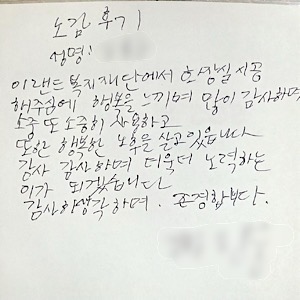 노감 후기
성명:
이랜드 복지재단에서 화장실 시공
해주심에 행복을 느끼며 많이 감사하며
소중 또 소중히 사용하고
또한 행복한 노후을 살고 있읍니다
감사 감사하며 더욱더 노력하는
이가 되겠습니다
감사히생각하며. 존경합니다.